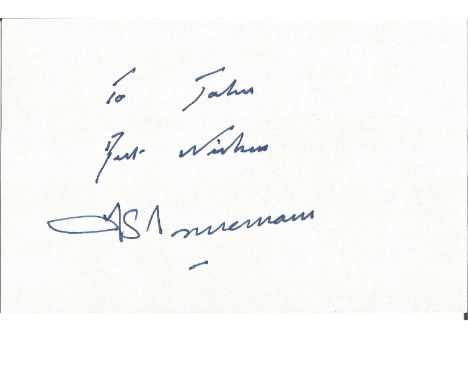 To John
Best Wishes